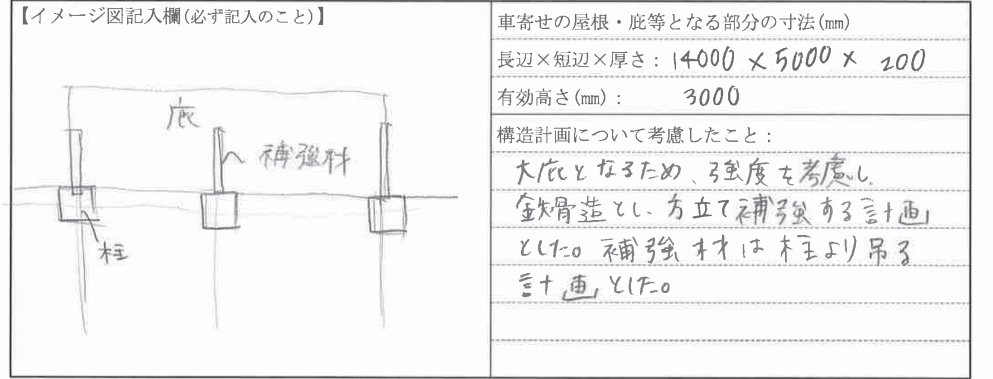 【イメージ図記入欄(必ず記入のこと)】
庇
補強材
柱
車寄せの屋根・庇等となる部分の寸法(mm)
長辺×短辺×厚さ：14000 × 5000 × 200
有効高さ(mm)： 3000
構造計画について考慮したこと：
大庇となるため、強度を考慮し、
鉄骨造とし、方立て補強する計画
とした。補強材は柱より吊る
計画とした。